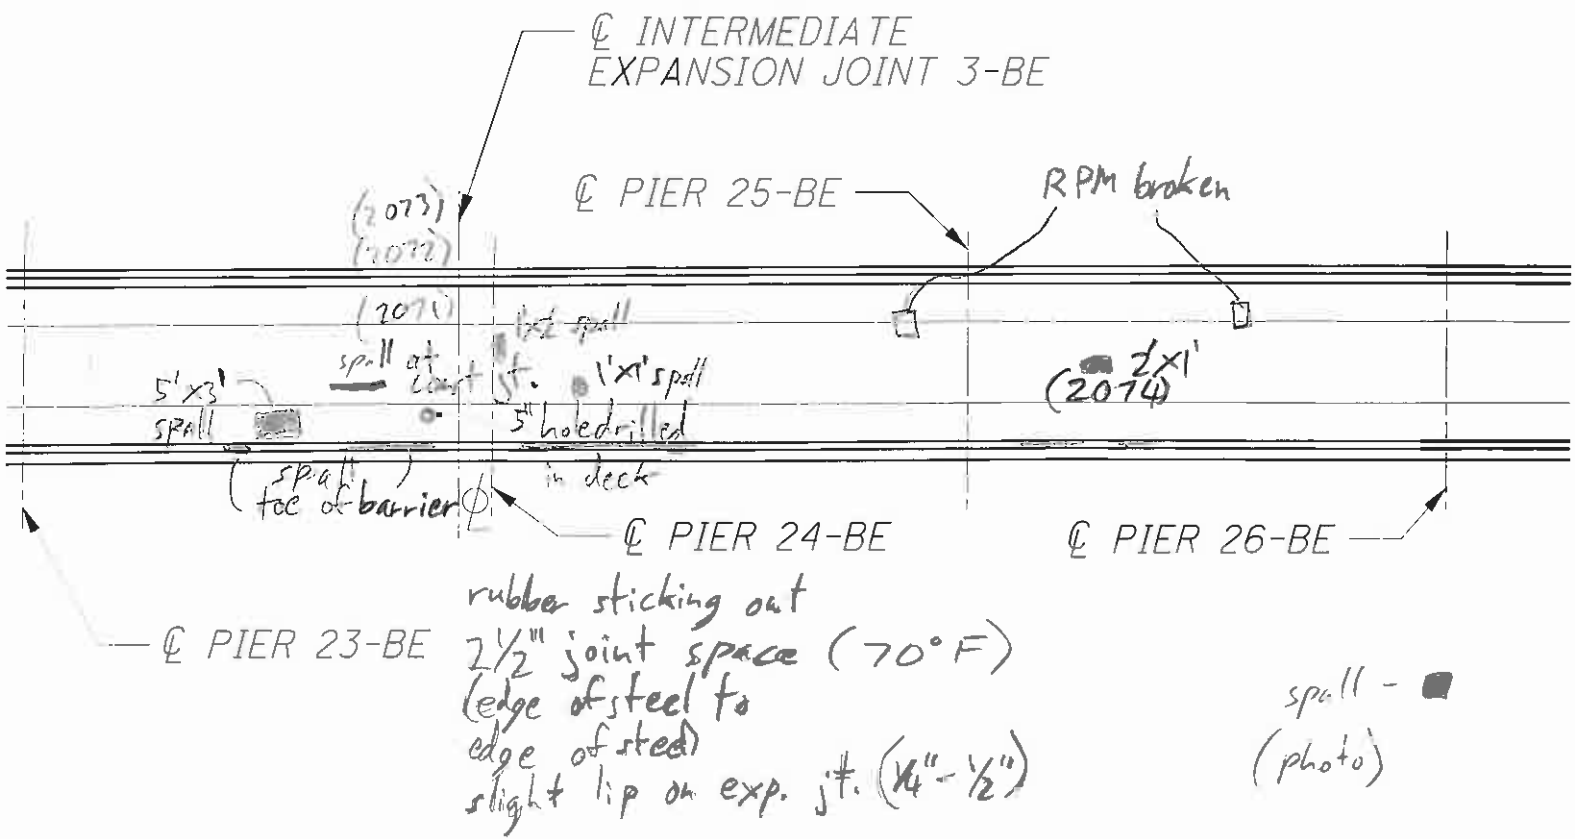 ℄ INTERMEDIATE
EXPANSION JOINT 3-BE
℄ PIER 25-BE
RPM broken
(2073)
(2072)
(2071)
1x2 spall
spall at
const jt.
1'x1' spall
2'x1'
(2074)
5'x3'
spall
5" hole drilled
in deck
(spall)
toe of barrier
℄ PIER 24-BE
℄ PIER 26-BE
℄ PIER 23-BE
rubber sticking out
2½" joint space (70°F)
(edge of steel to
edge of steel)
slight lip on exp. jt. (¼"-½")
spall -
(photo)